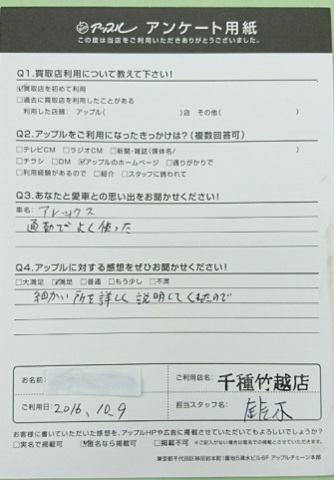 アップル アンケート用紙
この度は当店をご利用いただきありがとうございました。
Q1.買取店利用について教えて下さい!
☑買取店を初めて利用
□過去に買取店を利用したことがある
利用した店舗:アップル( )店 その他( )
Q2.アップルをご利用になったきっかけは?(複数回答可)
□テレビCM □ラジオCM □新聞・雑誌(媒体名/ )
□チラシ □DM ☑アップルのホームページ □通りがかりで
□利用経験があるので □紹介 □スタッフに誘われて
Q3.あなたと愛車との思い出をお聞かせください!
車名:アレックス
通勤でよく使った
Q4.アップルに対する感想をぜひお聞かせください!
□大満足 ☑満足 □普通 □もう少し □不満
細かい所を詳しく説明してくれたので
お名前:
ご利用店名:千種竹越店
ご利用日:2016.10.9
担当スタッフ名:鈴木
お客様に書いていただいた感想を、アップルHPや広告に掲載させていただいてもよろしいでしょうか?
□実名で掲載可 ☑匿名なら掲載可 □掲載不可 ※ご記入がない場合は匿名での掲載とさせていただきます。
東京都千代田区神田前本町1番地5清水ビル6F アップルチェーン本部